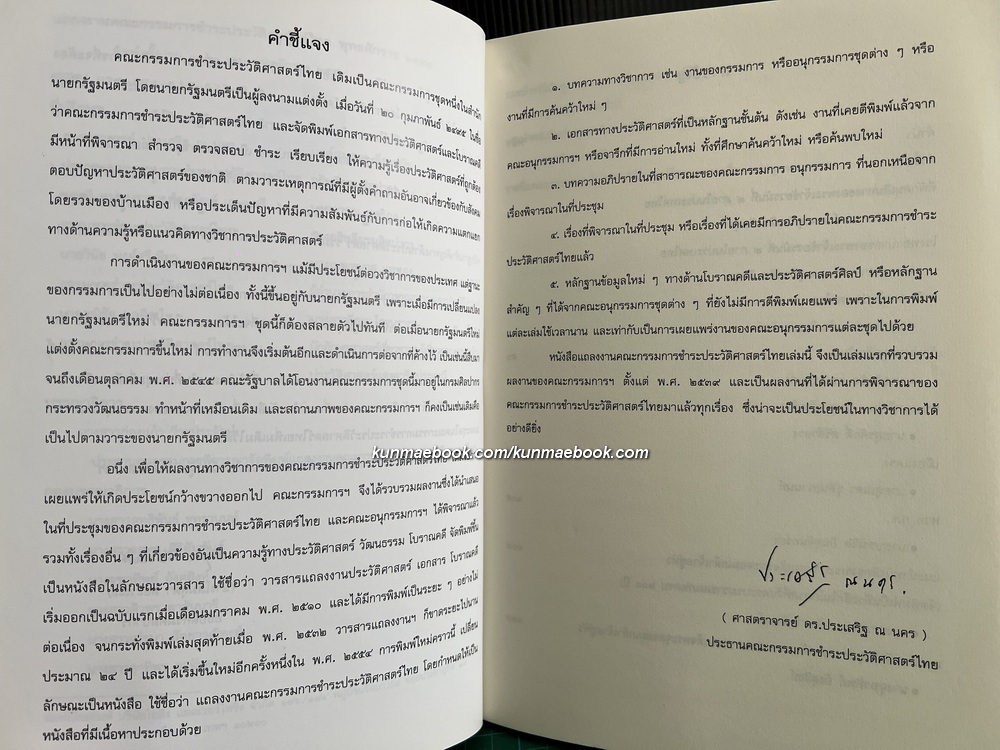 คำชี้แจง
คณะกรรมการชำระประวัติศาสตร์ไทย เดิมเป็นคณะกรรมการชุดหนึ่งในสำนัก
นายกรัฐมนตรี โดยนายกรัฐมนตรีเป็นผู้ลงนามแต่งตั้ง เมื่อวันที่ ๒๐ กุมภาพันธ์ ในชื่อ
ว่าคณะกรรมการชำระประวัติศาสตร์ไทย และจัดพิมพ์เอกสารทางประวัติศาสตร์และโบราณคดี
มีหน้าที่พิจารณา สำรวจ ตรวจสอบ ชำระ เรียบเรียง ให้ความรู้เรื่องประวัติศาสตร์ที่ถูกต้อง
ตอบปัญหาประวัติศาสตร์ของชาติ ตามวาระเหตุการณ์ที่มีผู้ตั้งคำถามอันอาจเกี่ยวข้องกับสังคม
โดยรวมของบ้านเมือง หรือประเด็นปัญหาที่มีความสัมพันธ์กับการก่อให้เกิดความแตกแยก
ทางด้านความรู้หรือแนวคิดทางวิชาการประวัติศาสตร์
การดำเนินงานของคณะกรรมการฯ แม้มีประโยชน์ต่อวงวิชาการของประเทศ แต่ฐานะ
ของกรรมการเป็นไปอย่างไม่ต่อเนื่อง ทั้งนี้ขึ้นอยู่กับนายกรัฐมนตรี เพราะเมื่อมีการเปลี่ยนแปลง
นายกรัฐมนตรีใหม่ คณะกรรมการฯ ชุดนี้ก็ต้องสลายตัวไปทันที ต่อเมื่อนายกรัฐมนตรีใหม่
แต่งตั้งคณะกรรมการขึ้นใหม่ การทำงานจึงเริ่มต้นอีกและดำเนินการต่อจากที่ค้างไว้ เป็นเช่นนี้สืบมา
จนถึงเดือนตุลาคม พ.ศ. ๒๕๔๕ คณะรัฐบาลได้โอนงานคณะกรรมการชุดนี้มาอยู่ในกรมศิลปากร
กระทรวงวัฒนธรรม ทำหน้าที่เหมือนเดิม และสถานภาพของคณะกรรมการฯ ก็คงเป็นเช่นเดิมคือ
เป็นไปตามวาระของนายกรัฐมนตรี
อนึ่ง เพื่อให้ผลงานทางวิชาการของคณะกรรมการชำระประวัติศาสตร์ไทย
เผยแพร่ให้เกิดประโยชน์กว้างขวางออกไป คณะกรรมการฯ จึงได้รวบรวมผลงานซึ่งได้นำเสนอ
ในที่ประชุมของคณะกรรมการชำระประวัติศาสตร์ไทย และคณะอนุกรรมการฯ ได้พิจารณาแล้ว
รวมทั้งเรื่องอื่น ๆ ที่เกี่ยวข้องอันเป็นความรู้ทางประวัติศาสตร์ วัฒนธรรม โบราณคดี จัดพิมพ์ขึ้น
เป็นหนังสือในลักษณะวารสาร ใช้ชื่อว่า วารสารแถลงงานประวัติศาสตร์ เอกสาร โบราณคดี
เริ่มออกเป็นฉบับแรกเมื่อเดือนมกราคม พ.ศ. ๒๕๑๐ และได้มีการพิมพ์เป็นระยะ ๆ อย่างไม่
ต่อเนื่อง จนกระทั่งพิมพ์เล่มสุดท้ายเมื่อ พ.ศ. ๒๕๓๒ วารสารแถลงงานฯ ก็ขาดระยะไปนาน
ประมาณ ๒๔ ปี และได้เริ่มขึ้นใหม่อีกครั้งหนึ่งใน พ.ศ. ๒๕๕๔ การพิมพ์ใหม่คราวนี้ เปลี่ยน
ลักษณะเป็นหนังสือ ใช้ชื่อว่า แถลงงานคณะกรรมการชำระประวัติศาสตร์ไทย โดยกำหนดให้เป็น
หนังสือที่มีเนื้อหาประกอบด้วย
๑. บทความทางวิชาการ เช่น งานของกรรมการ หรืออนุกรรมการชุดต่าง ๆ หรือ
งานที่มีการค้นคว้าใหม่ ๆ
๒. เอกสารทางประวัติศาสตร์ที่เป็นหลักฐานชั้นต้น ดังเช่น งานที่เคยตีพิมพ์แล้วจาก
คณะอนุกรรมการฯ หรือจารึกที่มีการอ่านใหม่ ทั้งที่ศึกษาค้นคว้าใหม่ หรือค้นพบใหม่
๓. บทความอภิปรายในที่สาธารณะของคณะกรรมการ อนุกรรมการ ที่นอกเหนือจาก
เรื่องพิจารณาในที่ประชุม
๔. เรื่องที่พิจารณาในที่ประชุม หรือเรื่องที่ได้เคยมีการอภิปรายในคณะกรรมการชำระ
ประวัติศาสตร์ไทยแล้ว
๕. หลักฐานข้อมูลใหม่ ๆ ทางด้านโบราณคดีและประวัติศาสตร์ศิลป์ หรือหลักฐาน
สำคัญ ๆ ที่ได้จากคณะอนุกรรมการชุดต่าง ๆ ที่ยังไม่มีการตีพิมพ์เผยแพร่ เพราะในการพิมพ์
แต่ละเล่มใช้เวลานาน และเท่ากับเป็นการเผยแพร่งานของคณะอนุกรรมการแต่ละชุดไปด้วย
หนังสือแถลงงานคณะกรรมการชำระประวัติศาสตร์ไทยเล่มนี้ จึงเป็นเล่มแรกที่รวบรวม
ผลงานของคณะกรรมการฯ ตั้งแต่ พ.ศ. ๒๕๓๙ และเป็นผลงานที่ได้ผ่านการพิจารณาของ
คณะกรรมการชำระประวัติศาสตร์ไทยมาแล้วทุกเรื่อง ซึ่งน่าจะเป็นประโยชน์ในทางวิชาการได้
อย่างดียิ่ง
kunmaebook.com/kunmaebook.com
ประเสริฐ ณ นคร.
( ศาสตราจารย์ ดร.ประเสริฐ ณ นคร )
ประธานคณะกรรมการชำระประวัติศาสตร์ไทย